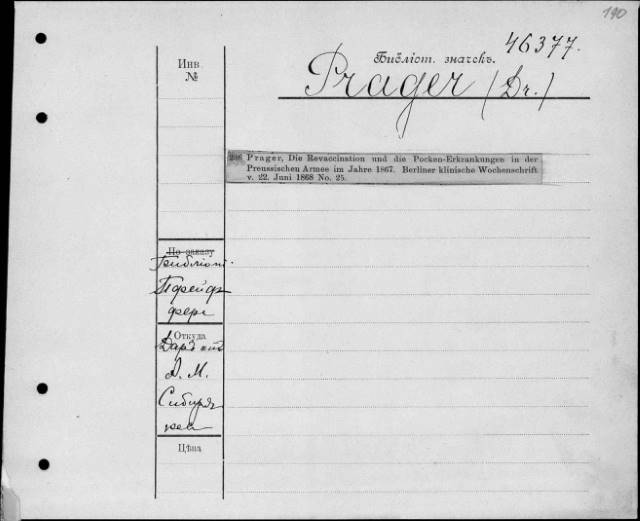 190
46377.
Инв.
№
Библіот. значекъ.
Prager (Dr.)
206 Prager, Die Revaccination und die Pocken-Erkrankungen in der
Preussischen Armee im Jahre 1867. Berliner klinische Wochenschrift
v. 22. Juni 1868 No. 25.
По заказу
Библіот.
Пфейф
фера
Откуда
Даръ
А. М.
Сибиря
кова
Цѣна